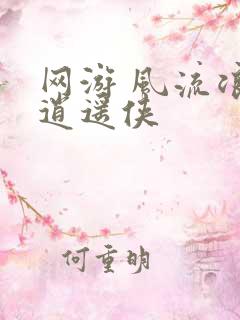 网游风流浪
逍遥侠
何重明